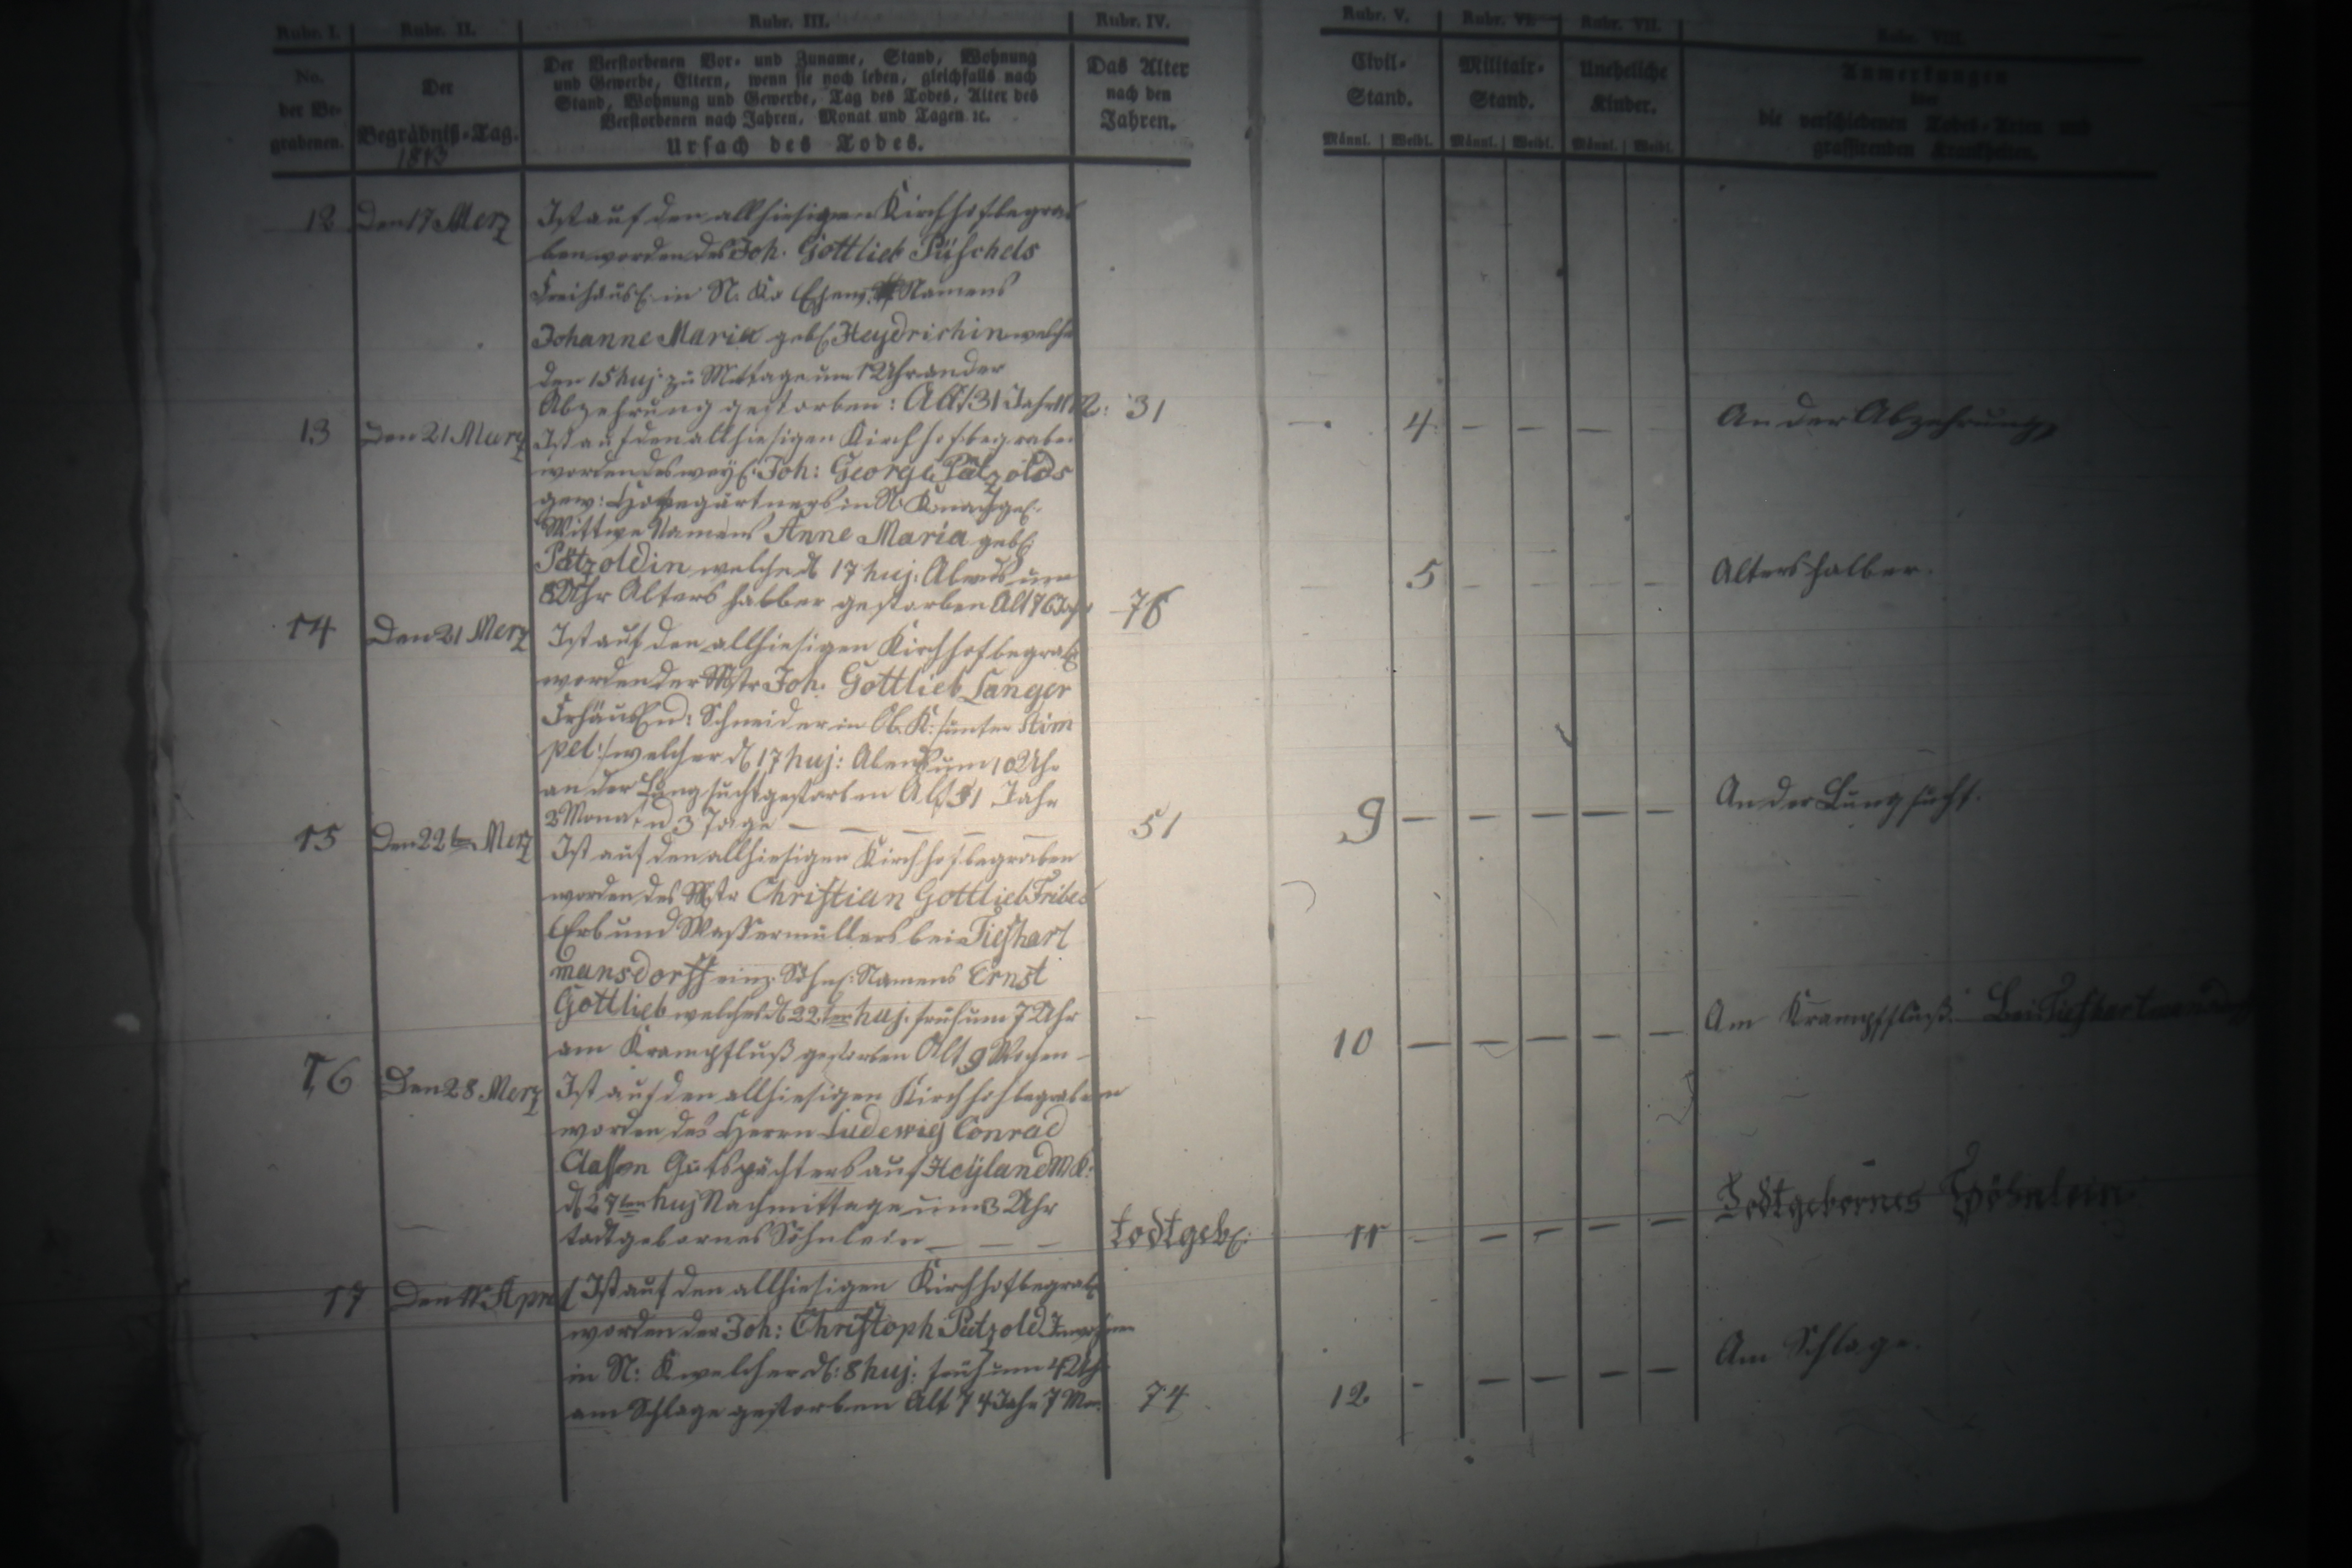 Rubr. I. Rubr. II. Rubr. III. Rubr. IV. Rubr. V. Rubr. VI. Rubr. VII. Rubr. VIII.
No. der Be- grabenen.
Der Begräbniß-Tag.
1843
Der Verstorbenen Vor- und Zuname, Stand, Wohnung
und Gewerbe, Eltern, wenn sie noch leben, gleichfalls nach
Stand, Wohnung und Gewerbe, Tag des Todes, Alter des
Verstorbenen nach Jahren, Monat und Tagen ꝛc.
Ursach des Todes.
Das Alter
nach den
Jahren.
Civil-
Stand.
Militair-
Stand.
Uneheliche
Kinder.
Anmerkungen
über
die verschiedenen Todes-Arten und
grassirenden Krankheiten.
Männl. Weibl. Männl. Weibl. Männl. Weibl.
12 Den 17 Merz Ist auf den allhiesigen Kirchhof begra
ben worden des Joh. Gottlieb Püschels
Freihäusl. in N. Ka Ehew. Namens
Johanne Maria geb. Heydrichin welche
den 15 huj. zu Mittage um 1 Uhr an der
Abzehrung gestorben: Alt 31 Jahr 11 M: 31 4 — — — — An der Abzehrung
13 Den 21 Merz Ist auf den allhiesigen Kirchhof begraben
worden des weyl. Joh: George Pätzolds
gew: Hofegärtners in N. K. nachgel.
Wittwe Namens Anne Maria geb.
Pätzoldin welche d. 17 huj. Abends um
8 Uhr Alters halber gestorben Alt 76 Jahr 76 5 — — — — Alters halber.
14 Den 21 Merz Ist auf den allhiesigen Kirchhof begrab.
worden der Mstr Joh. Gottlieb Langer
Frhäusl. u: Schneider in Ob. K:
welcher d. 17 huj: Abends um 10 Uhr
an der Lungsucht gestorben Alt 51 Jahr
2 Mona. u 3 Tage — — — — — 51 9 — — — — — An der Lungsucht.
15 Den 22ten Merz Ist auf den allhiesigen Kirchhof begraben
worden des Mstr Christian Gottlieb Tribes
Erb und Wassermüllers bei Tiefhart
mansdorff einz. Söhnl. Namens Ernst
Gottlieb welches d. 22ten huj. früh um 7 Uhr
am Krampffluß gestorben Alt 9 Wochen — 10 — — — — — Am Krampffluß. Bei Tiefhartmansdorf
16 Den 28 Merz Ist auf den allhiesigen Kirchhof begraben
worden des Herrn Ludewig Conrad
Classen Gutspächters auf Heyland M K:
d. 27ten huj Nachmittage um 3 Uhr
todtgebornes Söhnlein — — — todtgeb. 11 — — — — — Todtgebornes Söhnlein.
17 Den 11 April Ist auf den allhiesigen Kirchhof begrab.
worden der Joh: Christoph Pätzold Inwohner
in N: K welcher d. 8 huj: früh um 4 Uhr
am Schlage gestorben Alt 74 Jahr 7 Mo. 74 12 — — — — — Am Schlage.